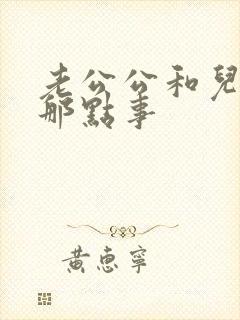 老公公和兒
那點事
黃惠寧